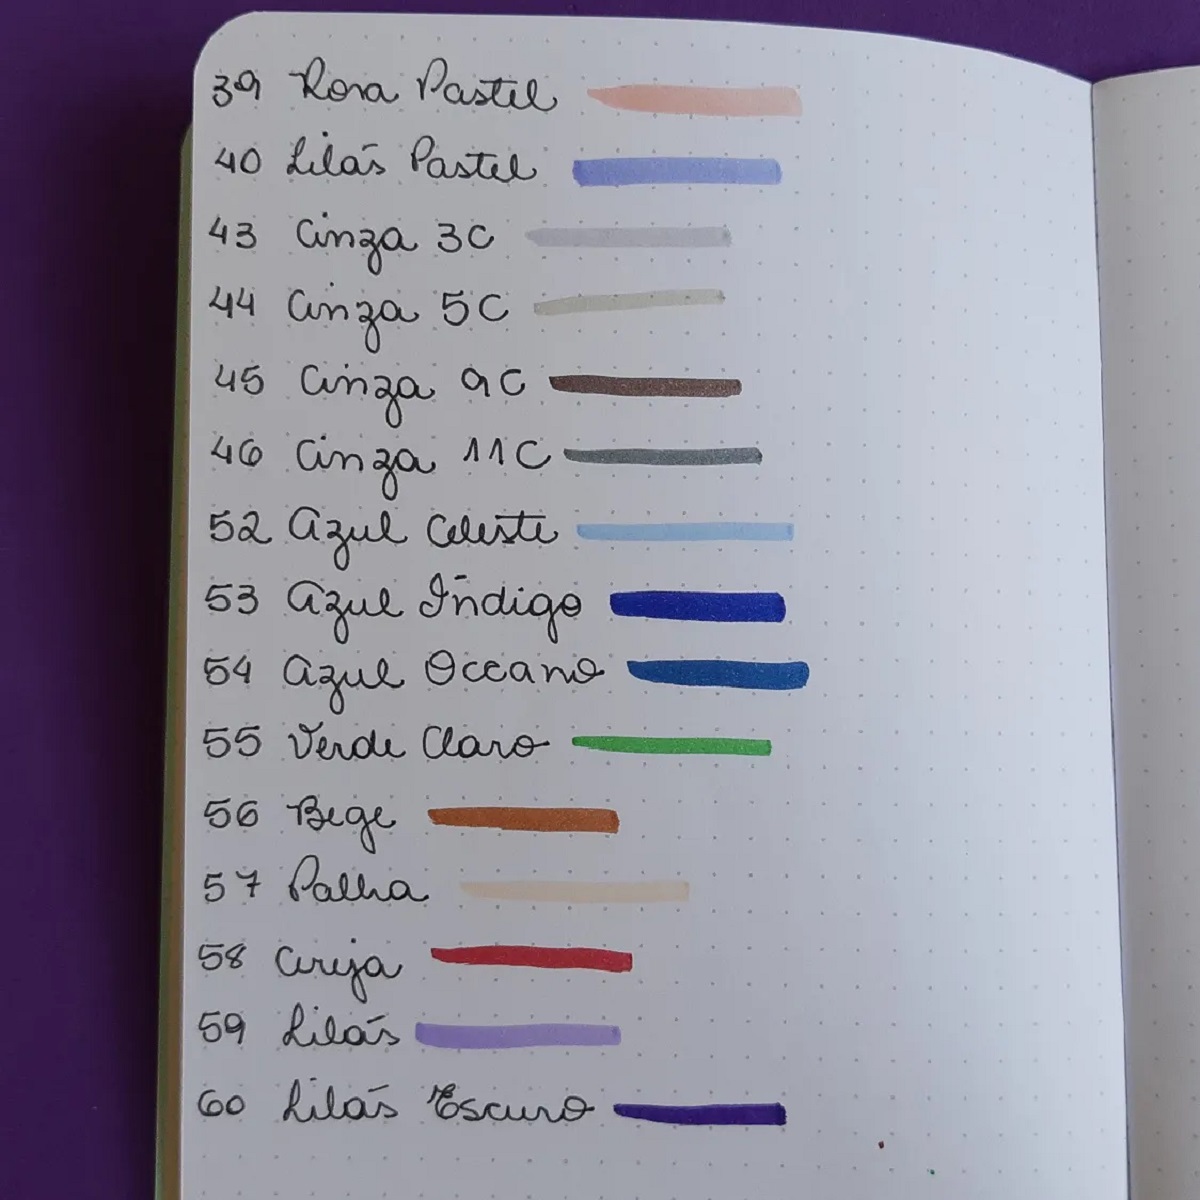 39 Rosa Pastel
40 Lilás Pastel
43 Cinza 3C
44 Cinza 5C
45 Cinza 9C
46 Cinza 11C
52 Azul Celeste
53 Azul Índigo
54 Azul Oceano
55 Verde Claro
56 Bege
57 Palha
58 Cereja
59 Lilás
60 Lilás Escuro